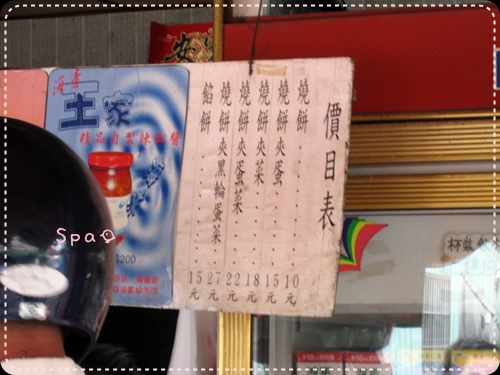 價目表
燒餅........10元
燒餅夾蛋......15元
燒餅夾菜......18元
燒餅夾蛋菜.....22元
燒餅夾黑輪蛋菜...27元
餡餅........15元
土家
精品自製辣椒醬
1200
Spa